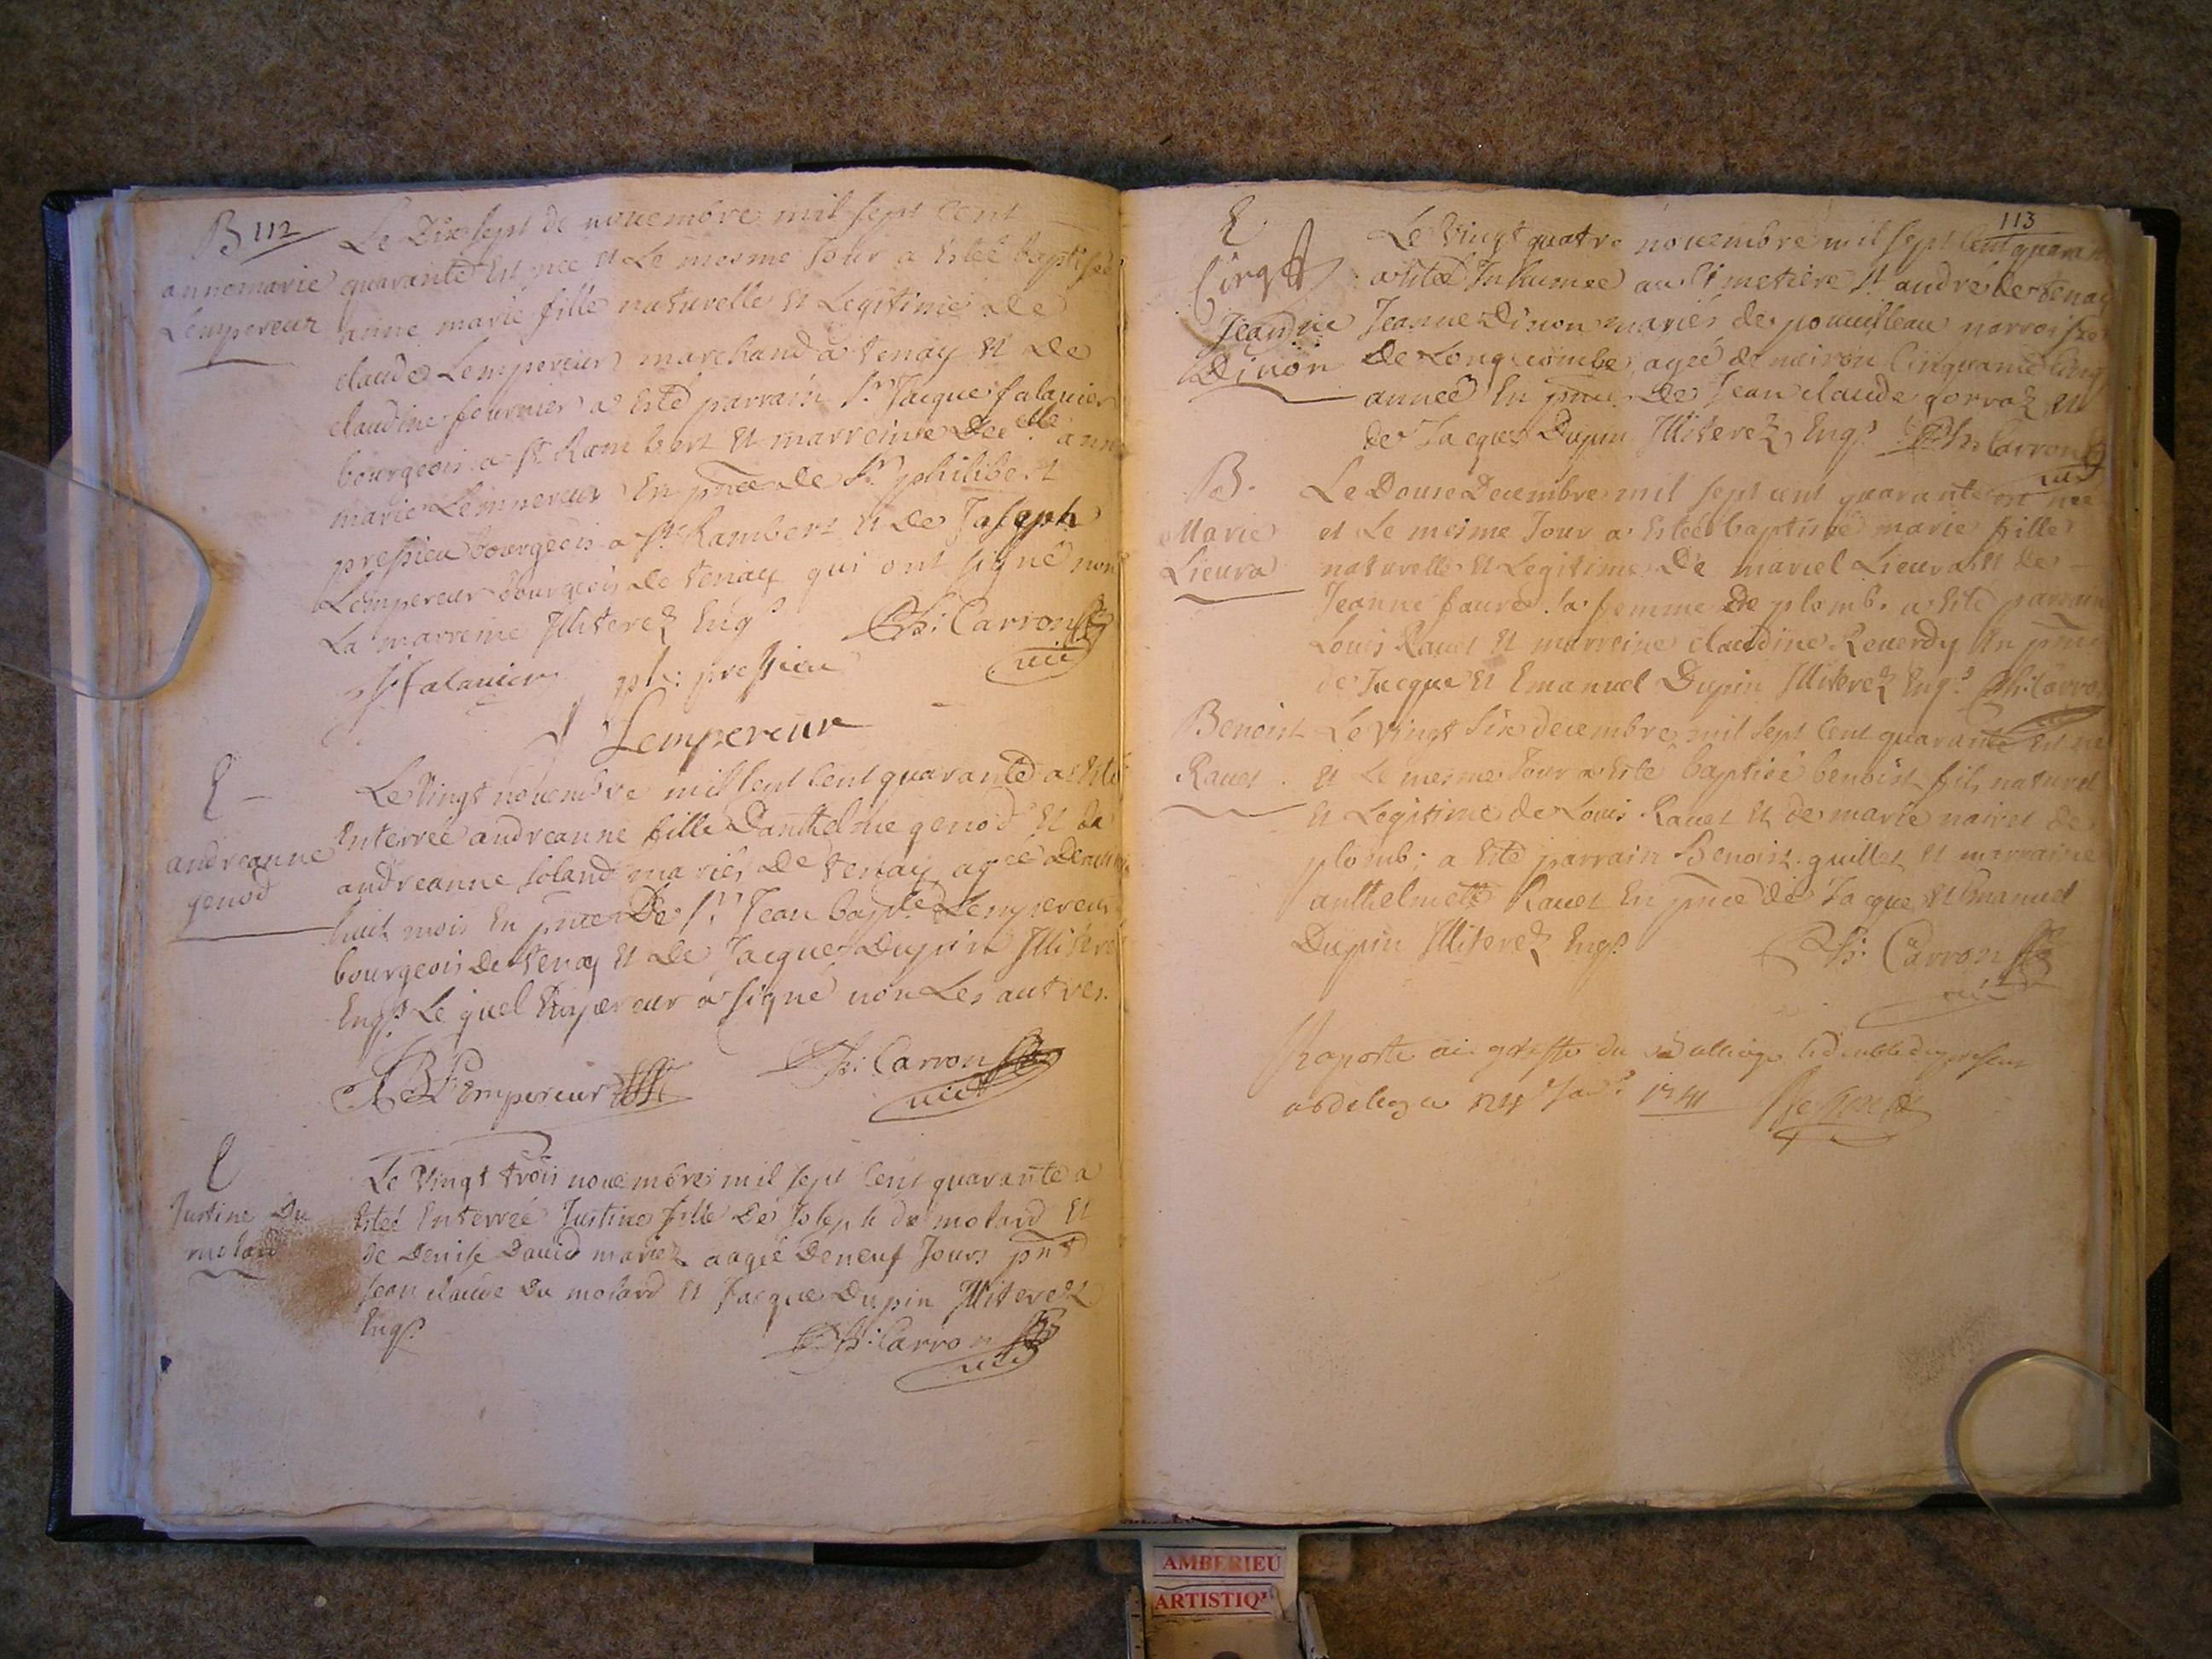 B 112
Le Dix sept de nouembre mil sept cent
annemarie quarante Est nee Et Le mesme Jour a Estée baptisée
Lempereur anne marie fille naturelle Et Legitime de
claude Lempereur marchand a tenay Et de
claudine fournier a Esté parrain Sr Jacque falauier
bourgeois a St Rambert Et marreine Delle anne
marie Lempereur En pnce de Sr philibert
pressieu bourgeois a St Rambert Et de Joseph
Lempereur bourgeois de tenay qui ont signé non
La marreine Illiterez Enqs Ph: Carron
J falauier ph: pressieu uic
Lempereur
E
Le Vingt nouembre mil sept Cent quarante a Esté
andreanne Interrée andreanne fille Danthelme genod Et de
genod andreanne soland mariés De tenay agée De
huit mois En pnce De Sr Jean bapte Lempereur
bourgeois De tenay Et de Jacque Dupin Illiteré
Enqs Le quel Empereur a signé non Les autres.
JB Lempereur Ph: Carron
uic
E
Le Vingt trois nouembre mil sept Cent quarante a
Justine Du Estée Enterrée Justine fille De Joseph du molard Et
molard de Denise Dauid mariez aagée De neuf Jours pnt
Jean claude Du molard Et Jacque Dupin Illiterez
Enqs Ph: Carron
uic
113
E
Le Vingt quatre nouembre mil sept Cent quaran
a Estée Inhumée au Cimetiere St andré de tenay
Jeanne Jeanne Dinon mariés de parroisse
Dinon De Longecombe, agée de Cinquante Cinq
année En pnce De Jean claude gorraz Et
de Jacque Dupin Illiterez Enqs Ph: Carron
uic
B.
Le Douse Decembre mil sept cent quarante est née
Marie et Le mesme Jour a Estée baptisé marie fille
Lieura naturelle Et Legitime De Lieura Et de
Jeanne faure sa femme De plomb. a Esté parrain
Louis Rauet Et marreine claudine Reuerdy En pnce
de Jacque Et Emanuel Dupin Illiterez Enqs Ph: Carron
Benoist Le Vingt Six decembre mil sept Cent quarante Est né
Rauet Et Le mesme Jour a Esté baptisé benoist fils naturel
Et Legitime de Louis Rauet Et de marie nairet de
plomb; a Esté parrain Benoist guillet Et marraine
anthelmette Rauet En pnce de Jacque Et Emanuel
Dupin Illiterez Enqs Ph: Carron
uic
Raporté au greffe du Balliage le double du present
a belley ce 24 Janr 1741
AMBERIEU
ARTISTIQ